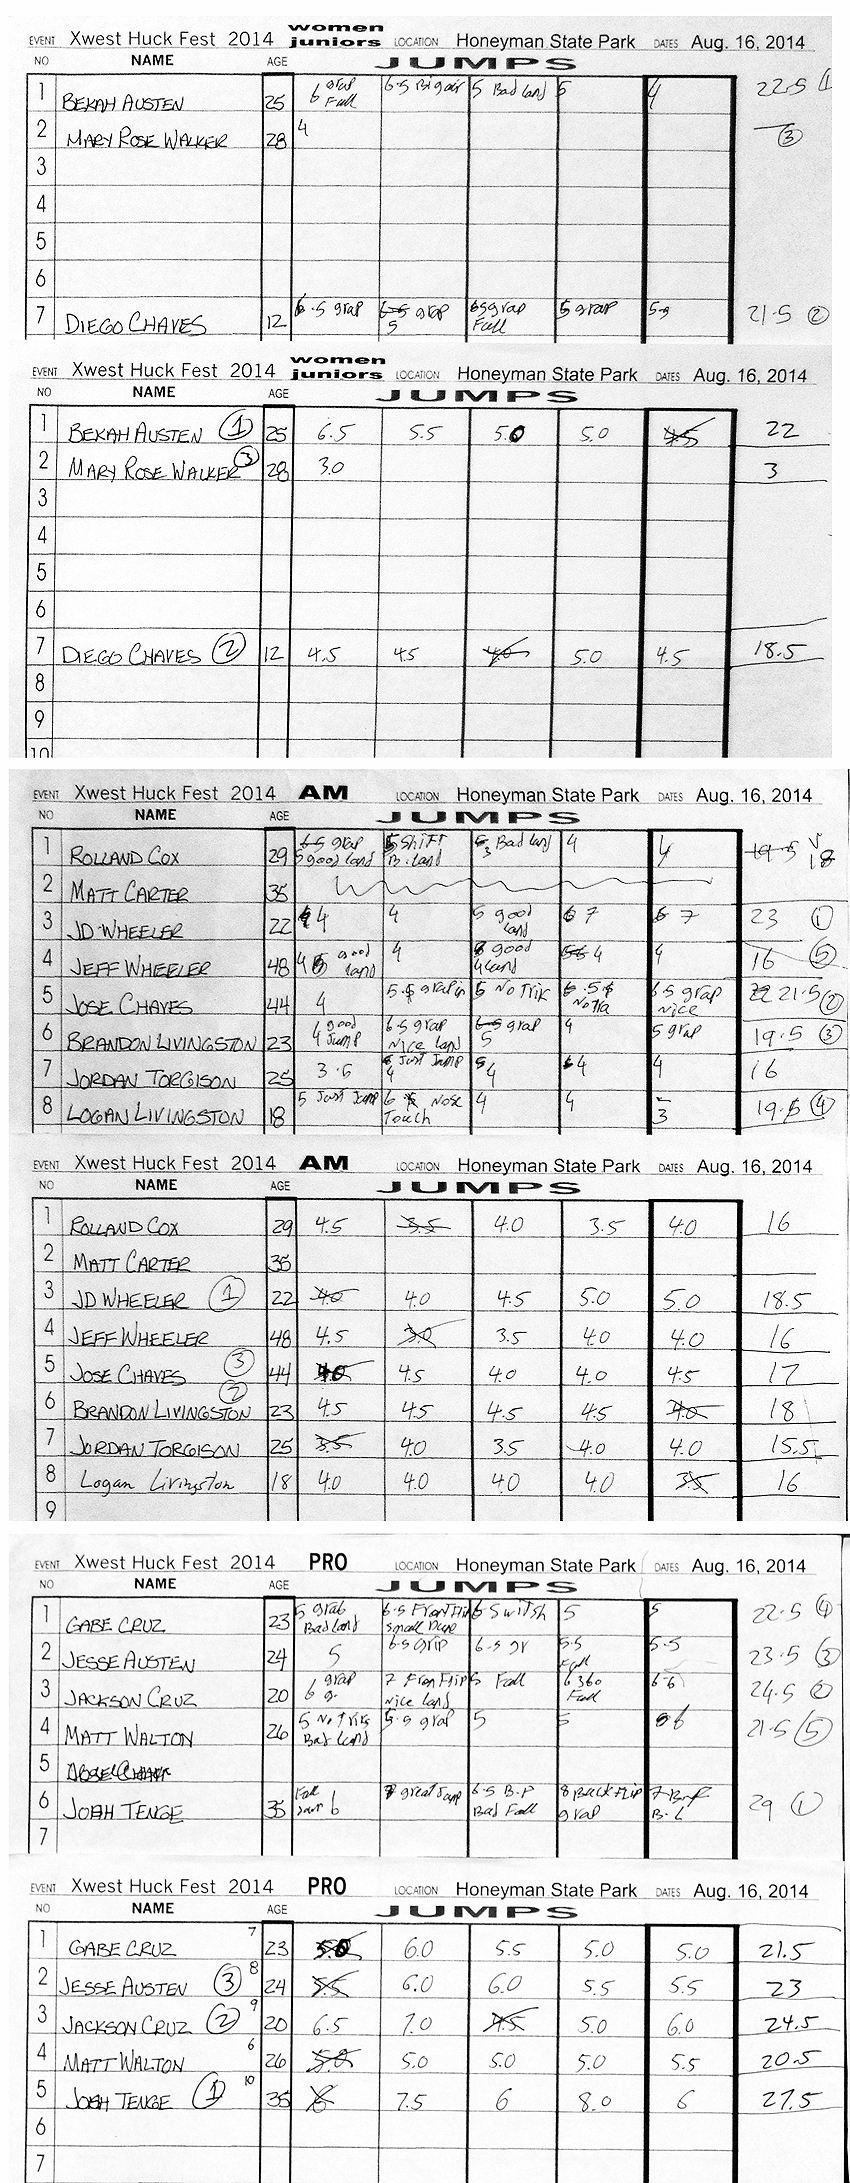 women
EVENT Xwest Huck Fest 2014 juniors LOCATION Honeyman State Park DATES Aug. 16, 2014
NO NAME AGE JUMPS
1 BEKAH AUSTEN 25 6 grap Fall 6.5 Big air 5 Bad land 5 4 22.5 1
2 MARY ROSE WALKER 28 4 3
3
4
5
6
7 DIEGO CHAVES 12 6.5 grap grap 5 grap Fall 5 grap 21.5 2
women
EVENT Xwest Huck Fest 2014 juniors LOCATION Honeyman State Park DATES Aug. 16, 2014
NO NAME AGE JUMPS
1 BEKAH AUSTEN 1 25 6.5 5.5 5.0 5.0 4.5 22
2 MARY ROSE WALKER 3 28 3.0 3
3
4
5
6
7 DIEGO CHAVES 2 12 4.5 4.5 4.0 5.0 4.5 18.5
8
9
10
EVENT Xwest Huck Fest 2014 AM LOCATION Honeyman State Park DATES Aug. 16, 2014
NO NAME AGE JUMPS
1 ROLLAND COX 29 6.5 grap 5 good land Shift B. land 3 Bad land 4 4 19.5 18
2 MATT CARTER 35
3 JD WHEELER 22 4 4 5 good land 7 7 23 1
4 JEFF WHEELER 48 4 good land 4 good 4 land 4 4 16 5
5 JOSE CHAVES 44 4 grap 5 No Trik 6.5 grap Nice 22 21.5 2
6 BRANDON LIVINGSTON 23 4 good Jump 6.5 grap Nice land 6.5 grap 5 4 5 grap 19.5 3
7 JORDAN TORGISON 25 3.5 Just Jump 4 4 4 4 16
8 LOGAN LIVINGSTON 18 5 Just Jump 6 Nose Touch 4 4 3 19.5 4
EVENT Xwest Huck Fest 2014 AM LOCATION Honeyman State Park DATES Aug. 16, 2014
NO NAME AGE JUMPS
1 ROLLAND COX 29 4.5 3.5 4.0 3.5 4.0 16
2 MATT CARTER 35
3 JD WHEELER 1 22 4.0 4.0 4.5 5.0 5.0 18.5
4 JEFF WHEELER 48 4.5 3.0 3.5 4.0 4.0 16
5 JOSE CHAVES 3 44 4.0 4.5 4.0 4.0 4.5 17
6 BRANDON LIVINGSTON 2 23 4.5 4.5 4.5 4.5 4.0 18
7 JORDAN TORGISON 25 3.5 4.0 3.5 4.0 4.0 15.5
8 Logan Livingston 18 4.0 4.0 4.0 4.0 3.5 16
9
EVENT Xwest Huck Fest 2014 PRO LOCATION Honeyman State Park DATES Aug. 16, 2014
NO NAME AGE JUMPS
1 GABE CRUZ 23 5 grab Bad land 6.5 Front Flip small 6 Switsh 5 5 22.5 4
2 JESSE AUSTEN 24 5 6.5 grip 6.5 gr 5.5 Fall 5.5 23.5 3
3 JACKSON CRUZ 20 6 grap 7 Fron Flip Nice land 5 Fall 6 360 Fall 6.6 24.5 2
4 MATT WALTON 26 5 No Triks Bad land 5.5 grap 5 5 6 21.5 5
5
6 JOSH TENGE 35 Fall 6 great Jump 6.5 B.F Bad Fall 8 Back Flip grap 7 B.L 29 1
7
EVENT Xwest Huck Fest 2014 PRO LOCATION Honeyman State Park DATES Aug. 16, 2014
NO NAME AGE JUMPS
1 GABE CRUZ 7 23 5.0 6.0 5.5 5.0 5.0 21.5
2 JESSE AUSTEN 3 8 24 5.5 6.0 6.0 5.5 5.5 23
3 JACKSON CRUZ 2 9 20 6.5 7.0 4.5 5.0 6.0 24.5
4 MATT WALTON 6 26 5.0 5.0 5.0 5.0 5.5 20.5
5 JOSH TENGE 1 10 35 6 7.5 6 8.0 6 27.5
6
7